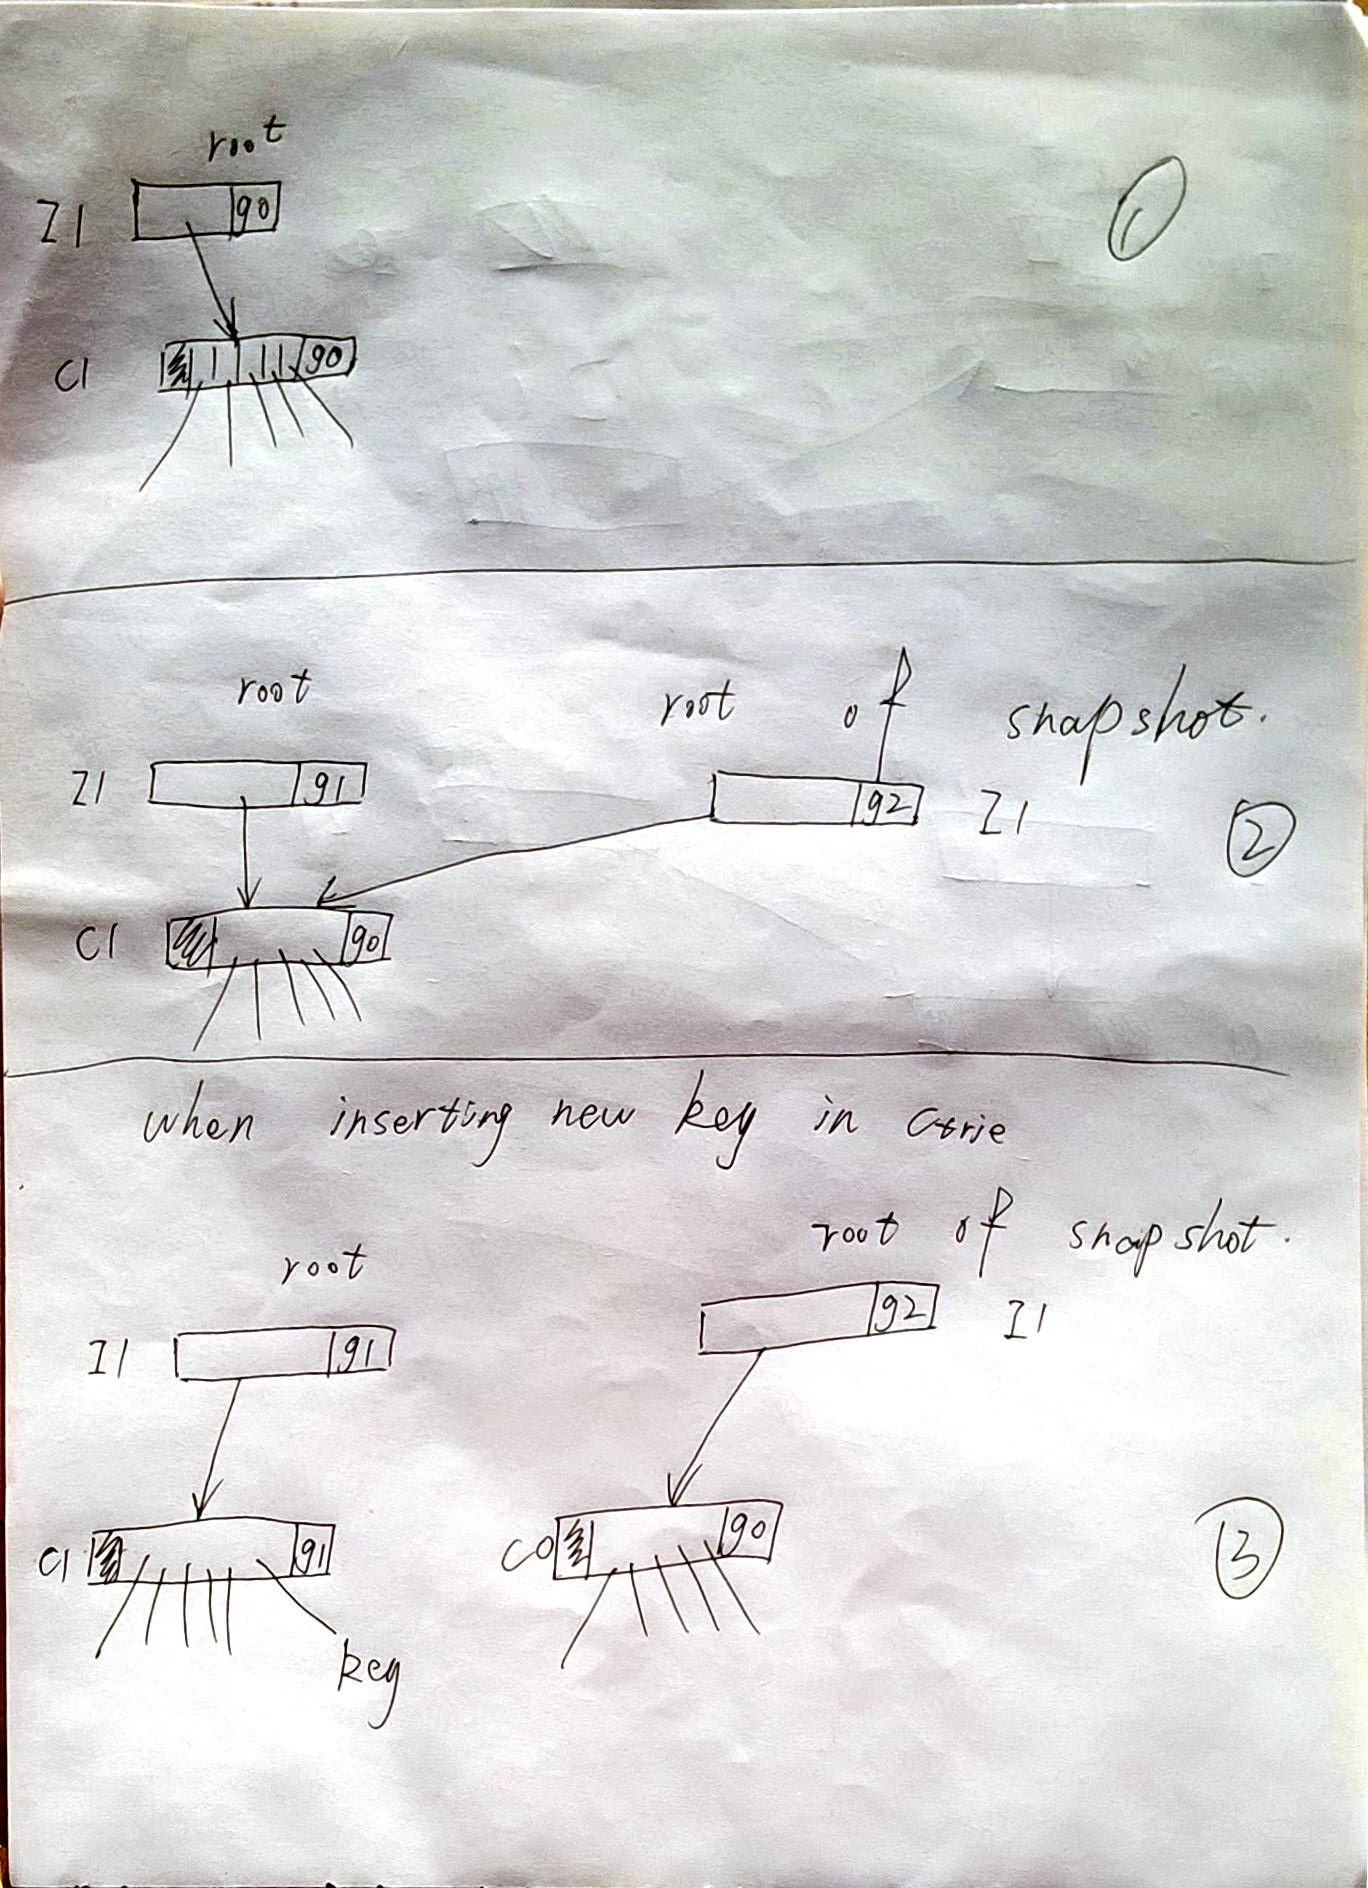 root
I1 g0
①
C1 g0
root root of snapshot.
I1 g1 g2 I1
②
C1 g0
when inserting new key in Ctrie
root of snapshot.
root
g2 I1
I1 g1
C1 g1 C0 g0
③
key